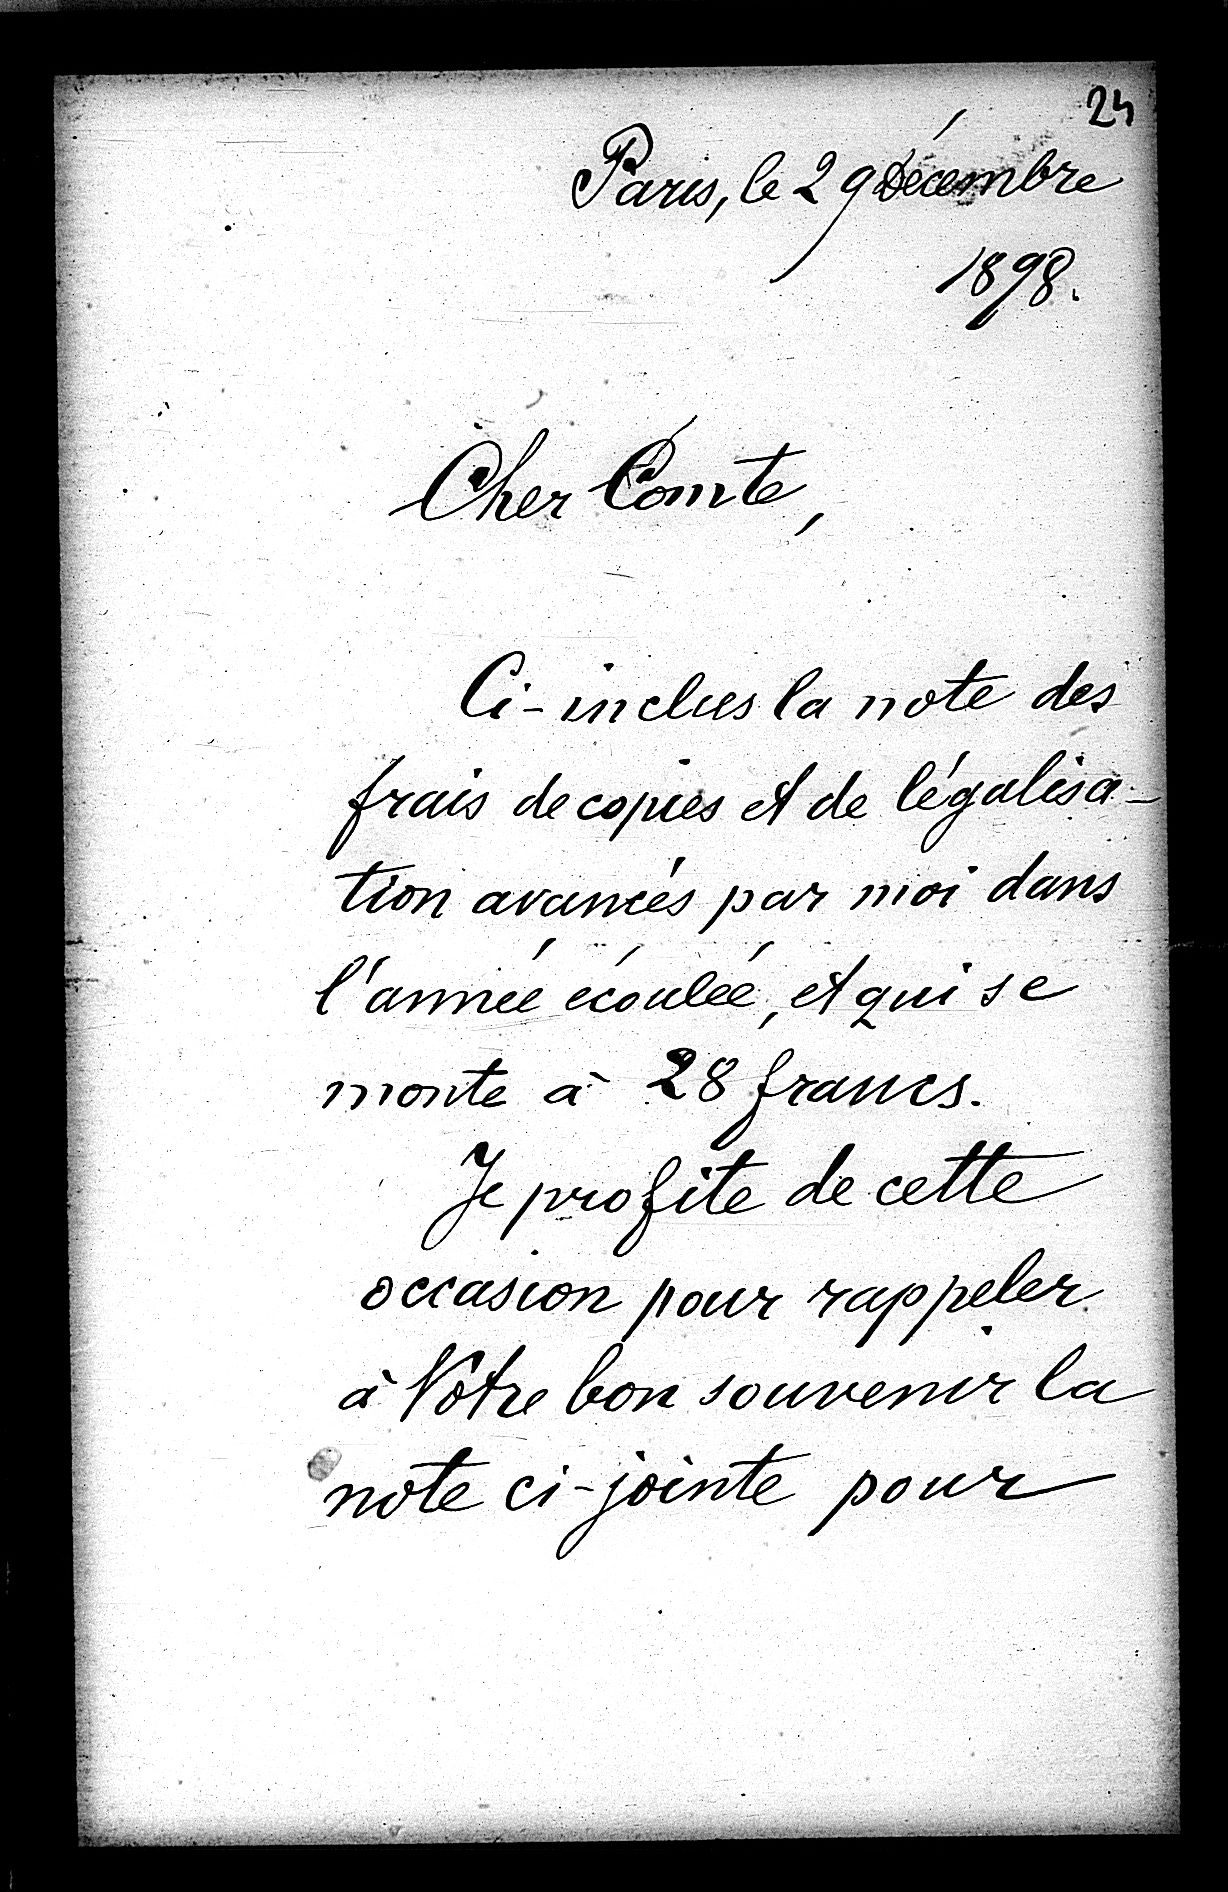 24
Paris, le 29 Décembre
1898.
Cher Comte,
Ci-inclus la note des
frais de copies et de légalisa-
tion avancés par moi dans
l'année écoulée, et qui se
monte à 28 francs.
Je profite de cette
occasion pour rappeler
à Vôtre bon souvenir la
note ci-jointe pour